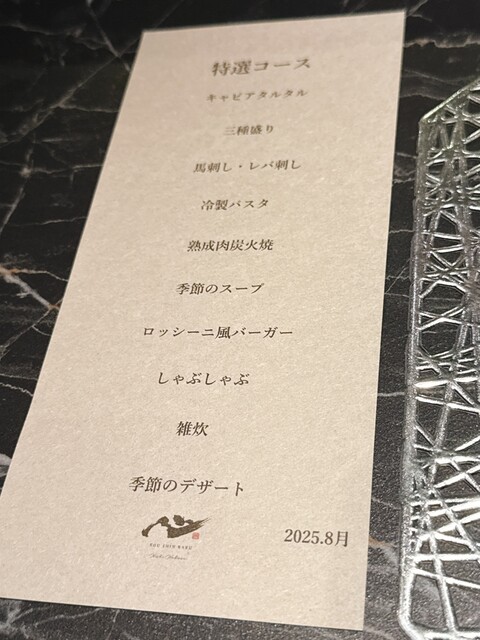 特選コース
キャビアタルタル
三種盛り
馬刺し・レバ刺し
冷製パスタ
熟成肉炭火焼
季節のスープ
ロッシーニ風バーガー
しゃぶしゃぶ
雑炊
季節のデザート
2025.8月